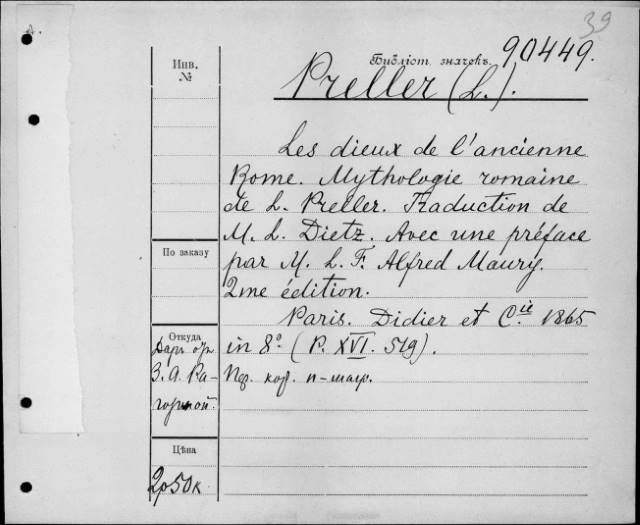 39
Инв.
№
Библіот. значекъ 90449.
Preller (L.).
Les dieux de l'ancienne
Rome. Mythologie romaine
de L. Preller. Traduction de
M. L. Dietz. Avec une préface
par M. L. F. Alfred Maury.
2me édition.
Paris. Didier et C.ie 1865
in 8º (P. XVI. 519).
По заказу
Откуда
Даръ отъ
З. А. Ра-
Цѣна
2р50к